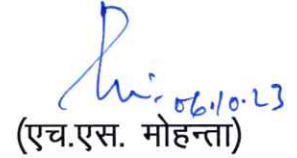 06.10.23
(एच.एस. मोहन्ता)